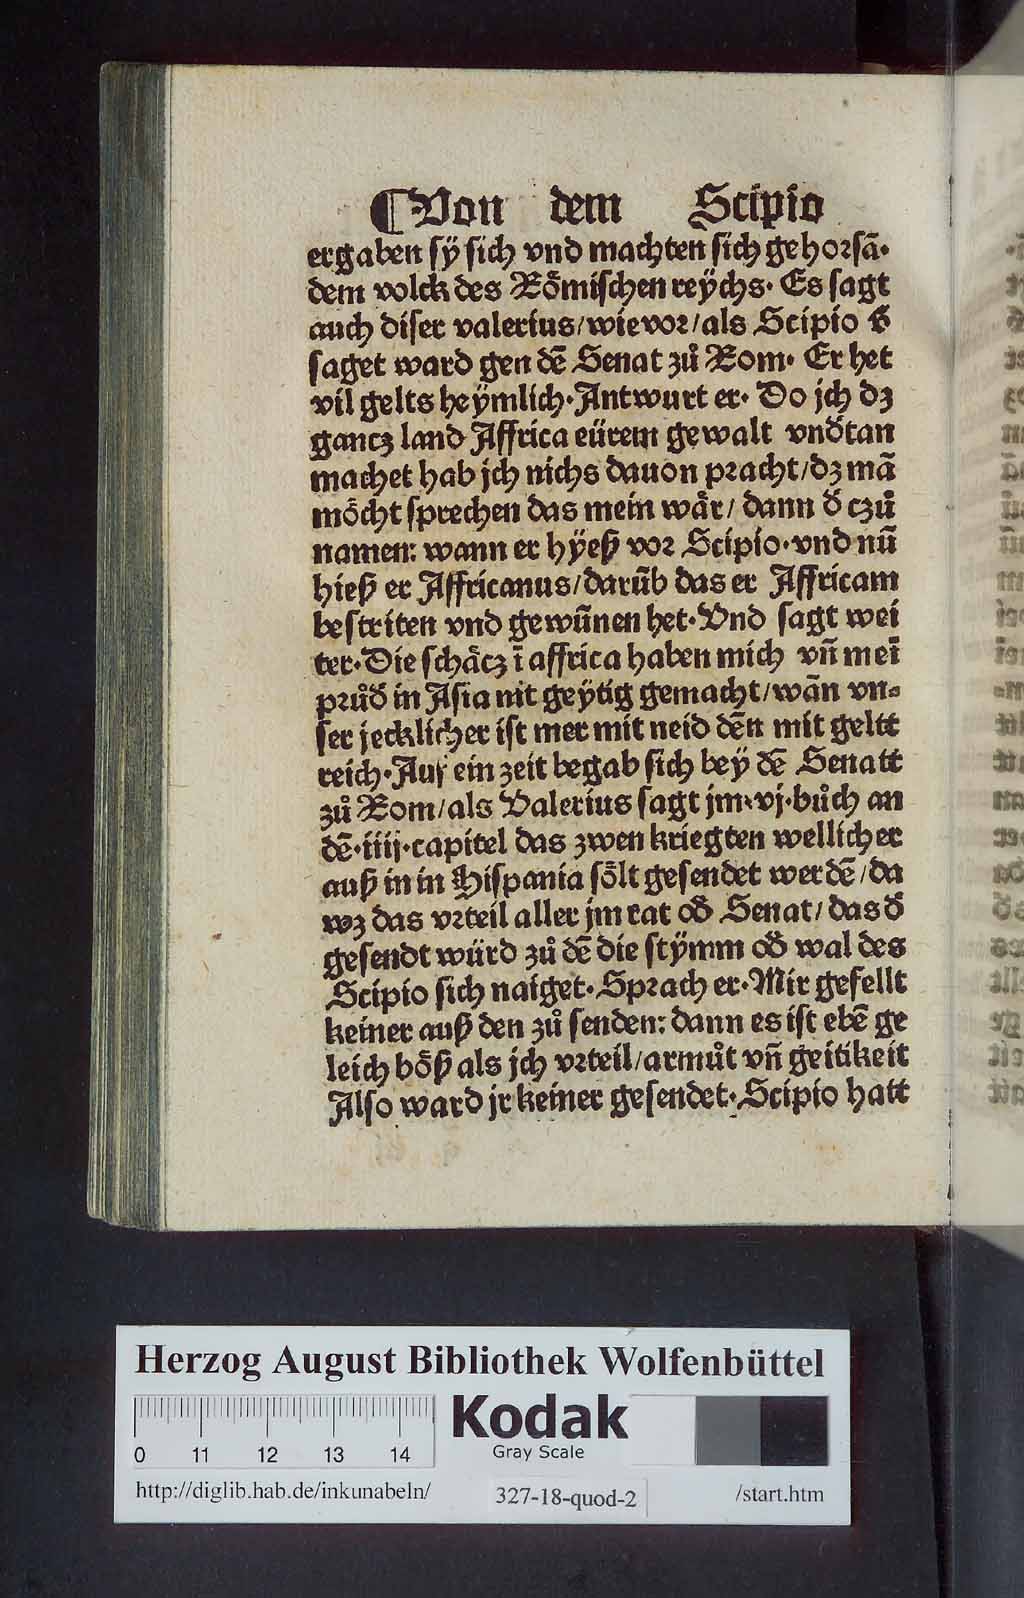 ¶Von dem Scipio
ergaben sÿ sich vnd machten sich gehorsā·
dem volck des Römischen reÿchs· Es sagt
auch diser valerius/wievor/als Scipio
saget ward gen dē Senat zů Rom· Er het
vil gelts heÿmlich·Antwurt er· Do jch dz
gancz land Affrica eürem gewalt vnđtan
machet hab jch nichs dauon pracht/dz mā
möcht sprechen das mein wär/ dann đ czů
namen: wann er hÿeß vor Scipio·vnd nū
hieß er Affricanus/darūb das er Affricam
bestriten vnd gewūnen het·Vnd sagt wei
ter·Die schäcz ī affrica haben mich vn̄ meī
průđ in Asia nit geÿtig gemacht/wān vn⸗
ser jecklicher ist mer mit neid dēn mit geltt
reich·Auf ein zeit begab sich beÿ dē Senatt
zů Rom/als Valerius sagt jm·vj·bůch an
dē·iiij·capitel das zwen kriegten wellicher
auß in in Hispania sölt gesendet werdē/da
wz das vrteil aller jm rat ođ Senat/das đ
gesendt würd zů dē die stÿmm ođ wal des
Scipio sich naiget·Sprach er·Mir gefellt
keiner auß den zů senden: dann es ist ebē ge
leich böß als jch vrteil/armůt vn̄ geitikeit
Also ward jr keiner gesendet·Scipio hatt
Herzog August Bibliothek Wolfenbüttel
Kodak
Gray Scale
0 11 12 13 14
http://diglib.hab.de/inkunabeln/ 327-18-quod-2 /start.htm